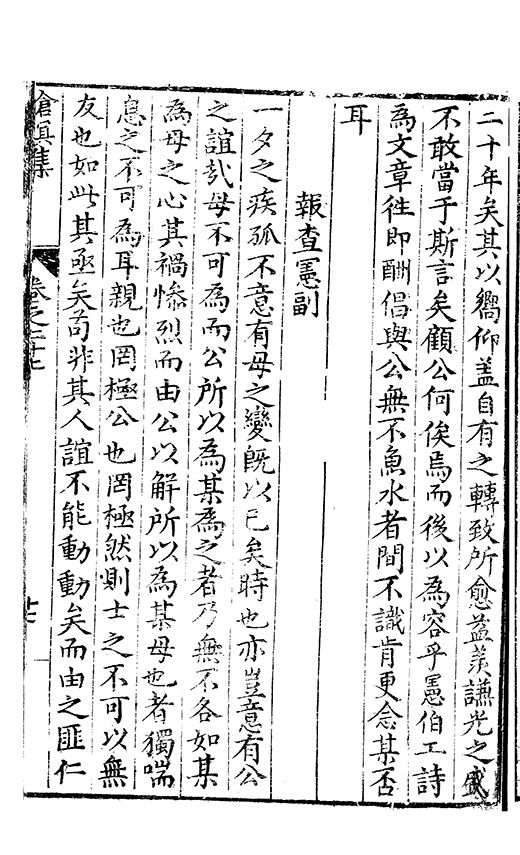 二十年矣其以嚮仰盖自有之轉致所愈益羕謙光之盛
不敢當于斯言矣顧公何俟焉而後以為容乎憲伯工詩
為文章徃即酬倡與公無不魚水者間不識肯更念某否
耳
報查憲副
一夕之疾孤不意有母之變旣以已矣時也亦豈意有公
之誼㢤母不可為而公所以為某為之者乃無不各如某
為母之心其禍慘烈而由公以解所以為某母也者獨喘
息之不可為耳親也罔極公也罔極然則士之不可以無
友也如此其亟矣苟非其人誼不能動動矣而由之匪仁
滄溟集
卷之二十七